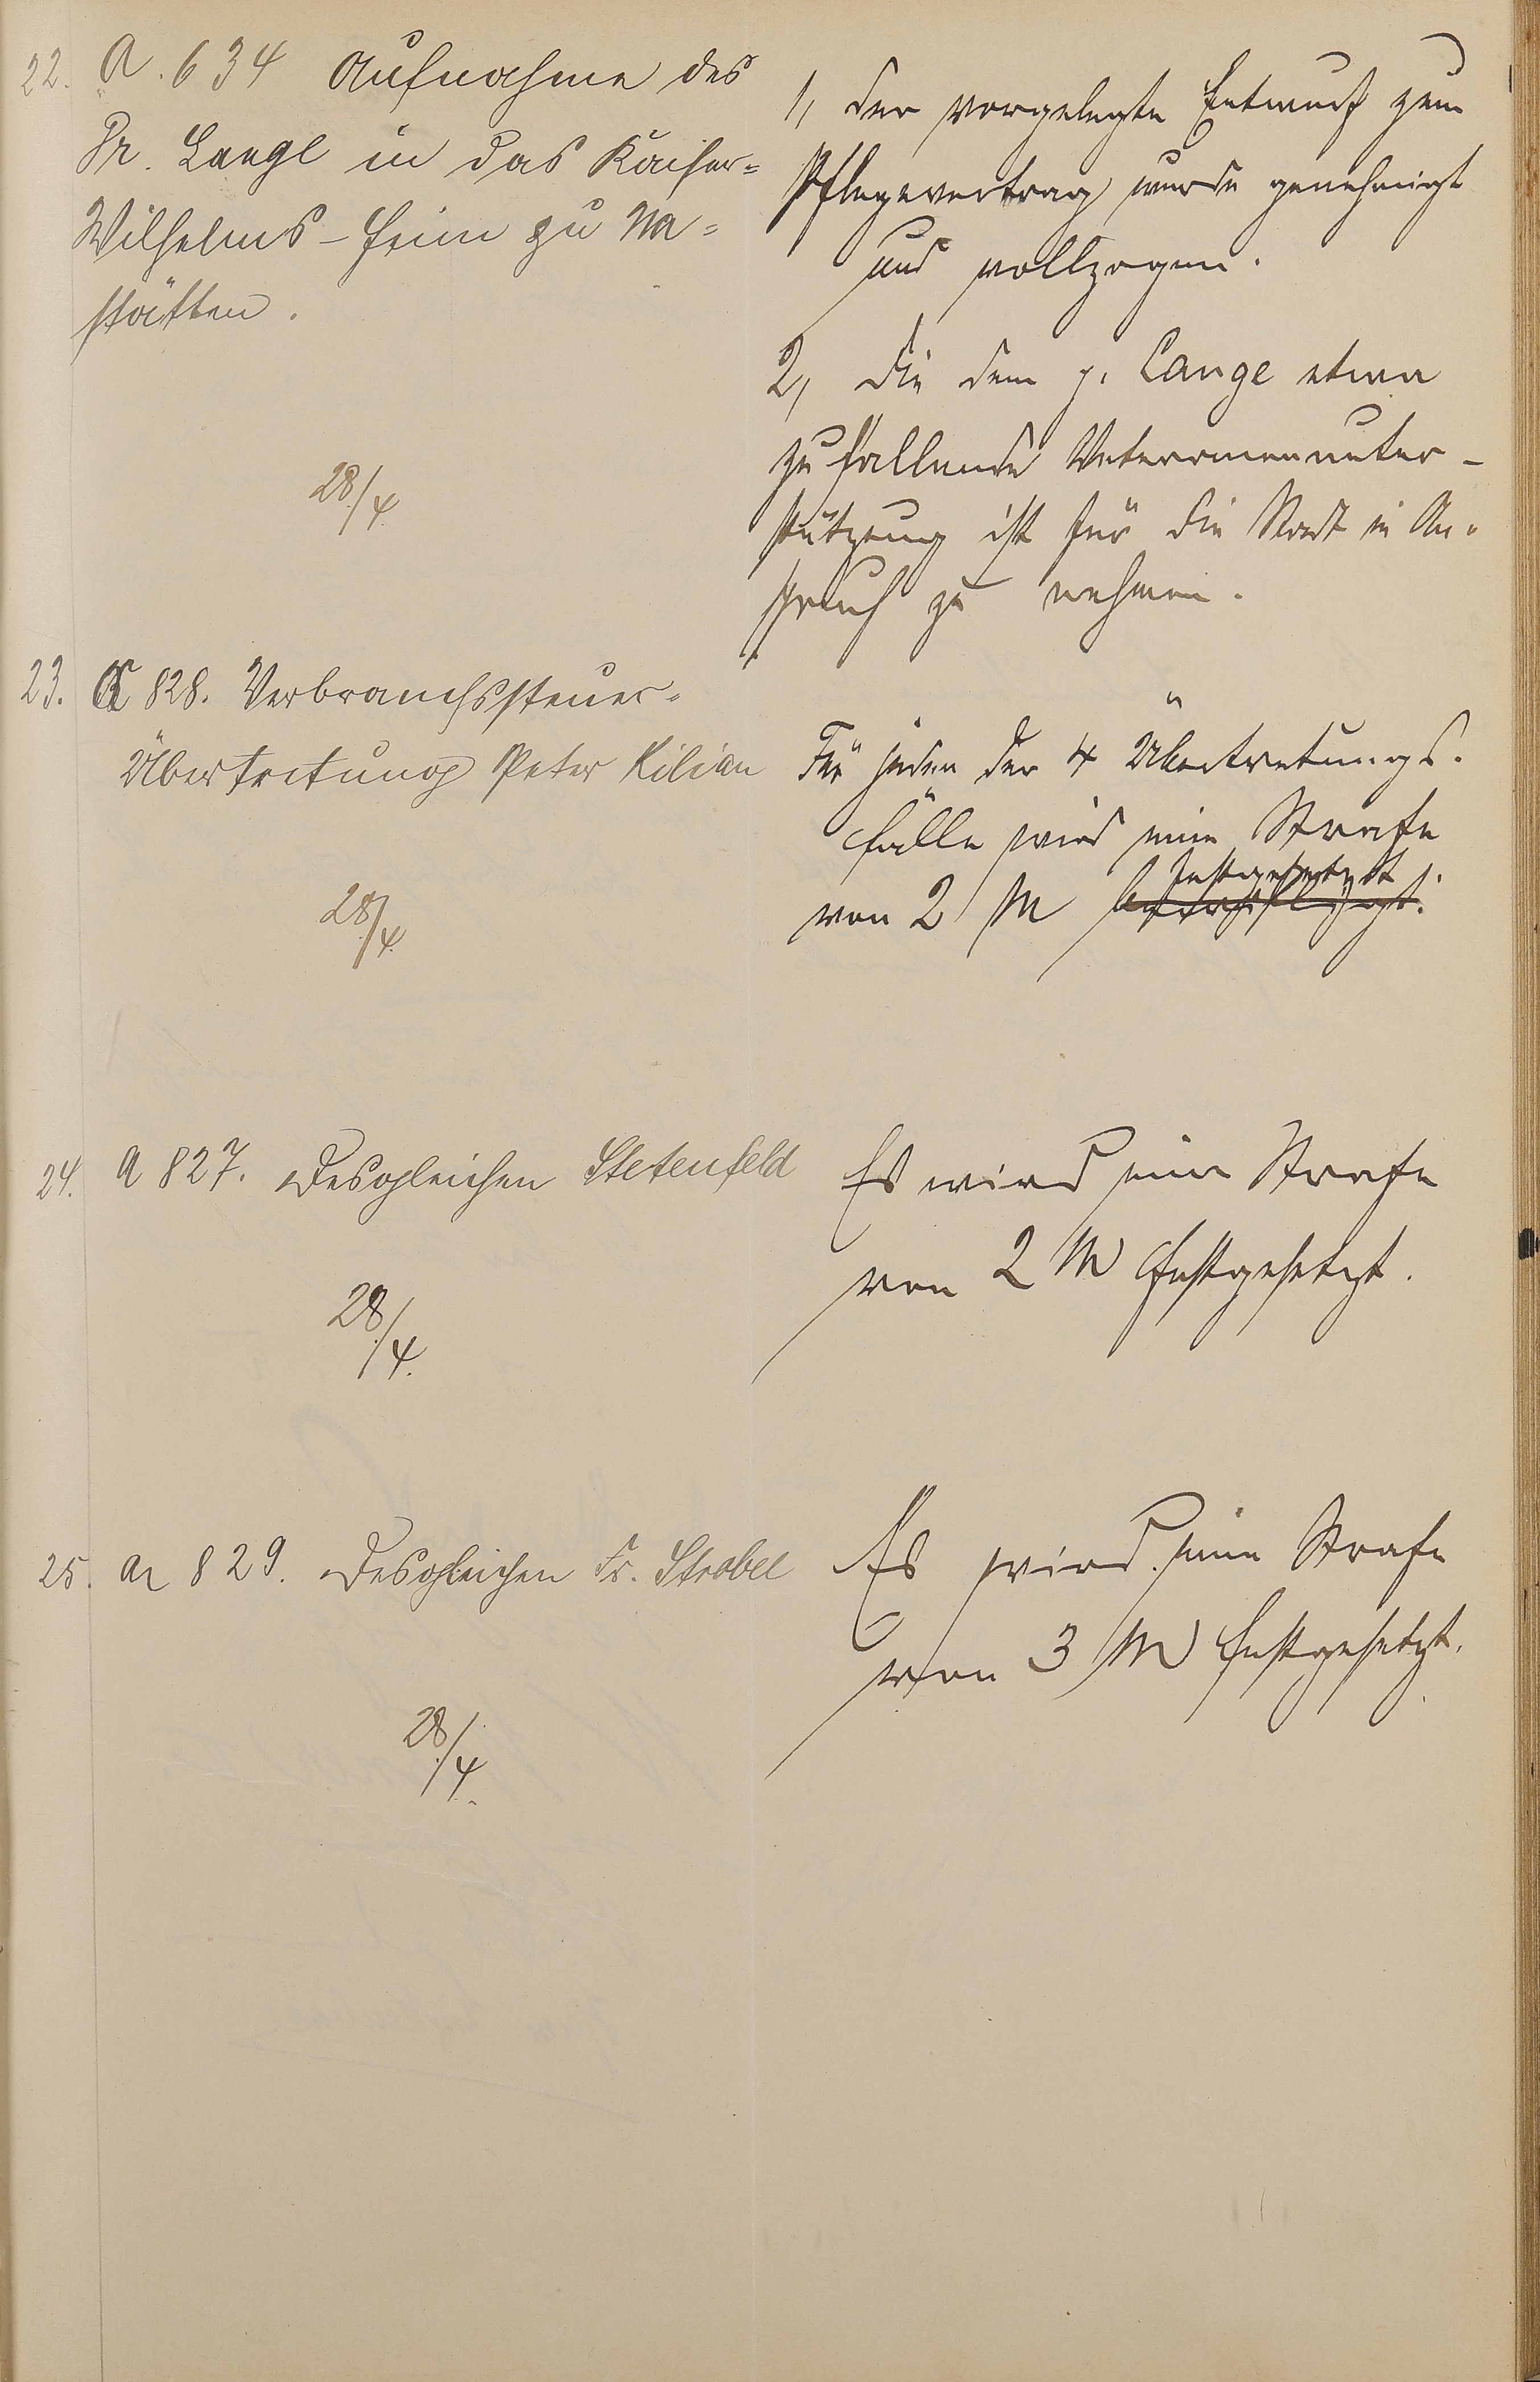 22. A. 634 Aufnahme des
Pr. Lange in das Kaiser=
Wilhelms-Heim zu Na=
stätten.
28/4
1, Der vorgelegte Entwurf zum
Pflegevertrag wurde genehmigt
und vollzogen.
2, Die dem p. Lange etwa
zufallende Veteranenunter-
stützung ist für die Stadt in An=
spruch zu nehmen.
23. A 828. Verbrauchssteuer=
Übertretung Peter Kilian
28/4
Für jeden der 4 Übertretungs=
fälle wird eine Strafe
festgesetzt.
von 2 M
24. A 827. Desgleichen Stetenfeld
28/4.
Es wird eine Strafe
von 2 M festgesetzt.
25. A 829. Desgleichen Fr. Strobel
28/4.
Es wird eine Strafe
von 3 M festgesetzt.